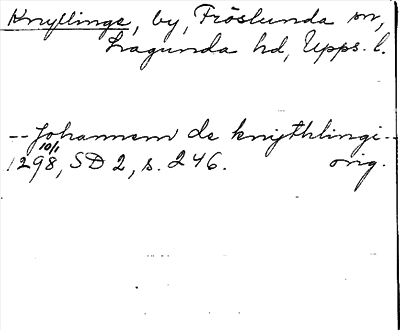 Knyllinge, by, Fröslunda sn,
Lagunda hd, Upps. l.
-- Johannem de knythlingi --
10/1
1298, SD 2, s. 246. orig.